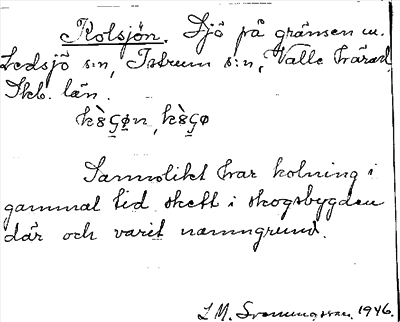 Kolsjön. Sjö på gränsen m.
Ledsjö s:n, Istrum s:n, Valle härad,
Skb. län.
Sannolikt har kolning i
gammal tid skett i skogsbygden
där och varit namngrund.
1946.